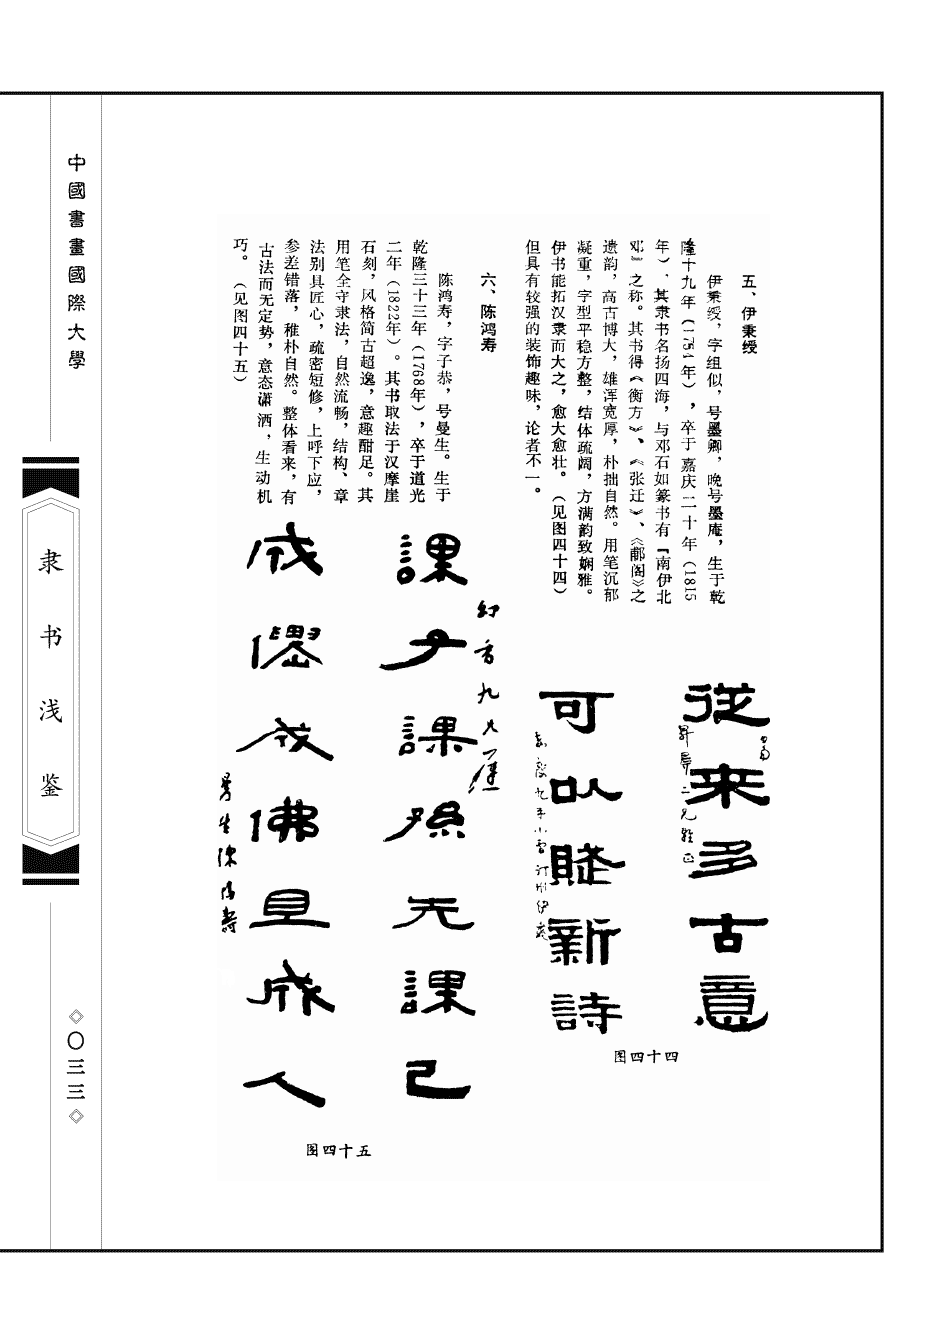 五、伊秉绶
伊秉绶，字组似，号墨卿，晚号墨庵，生于乾
隆十九年（1754年），卒于嘉庆二十年（1815
年）、其隶书名扬四海，与邓石如篆书有『南伊北
邓』之称。其书得《衡方》、《张迁》、《郙阁》之
遗韵，高古博大，雄浑宽厚，朴拙自然。用笔沉郁
凝重，字型平稳方整，结体疏阔，方满韵致娴雅。
伊书能拓汉隶而大之，愈大愈壮。（见图四十四）
但具有较强的装饰趣味，论者不一。
六、陈鸿寿
陈鸿寿，字子恭，号曼生。生于
乾隆三十三年（1768年），卒于道光
二年（1822年）。其书取法于汉摩崖
石刻，风格简古超逸，意趣酣足。其
用笔全守隶法，自然流畅，结构、章
法别具匠心，疏密短修，上呼下应，
参差错落，稚朴自然。整体看来，有
古法而无定势，意态潇洒，生动机
巧。（见图四十五）
從来多古意
可以賦新詩
图四十四
課子課孫先課己
成僊成佛且成人
曼生陳鴻壽
图四十五
中國書畫國際大學
隶书浅鉴
〇三三